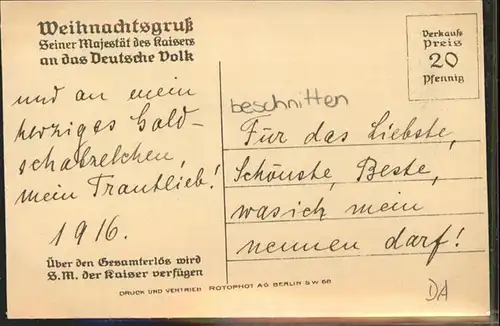 Weihnachtsgruß
Seiner Majestät des Kaisers
an das Deutsche Volk
und an mein
herziges Gold-
schatzelchen,
mein Trautlieb!
1916.
Über den Gesamterlös wird
S.M. der Kaiser verfügen
Verkaufs
Preis
20
Pfennig
beschnitten
Für das Liebste,
Schönste, Beste,
was ich mein
nennen darf!
DRUCK UND VERTRIEB ROTOPHOT AG BERLIN SW 68
DA